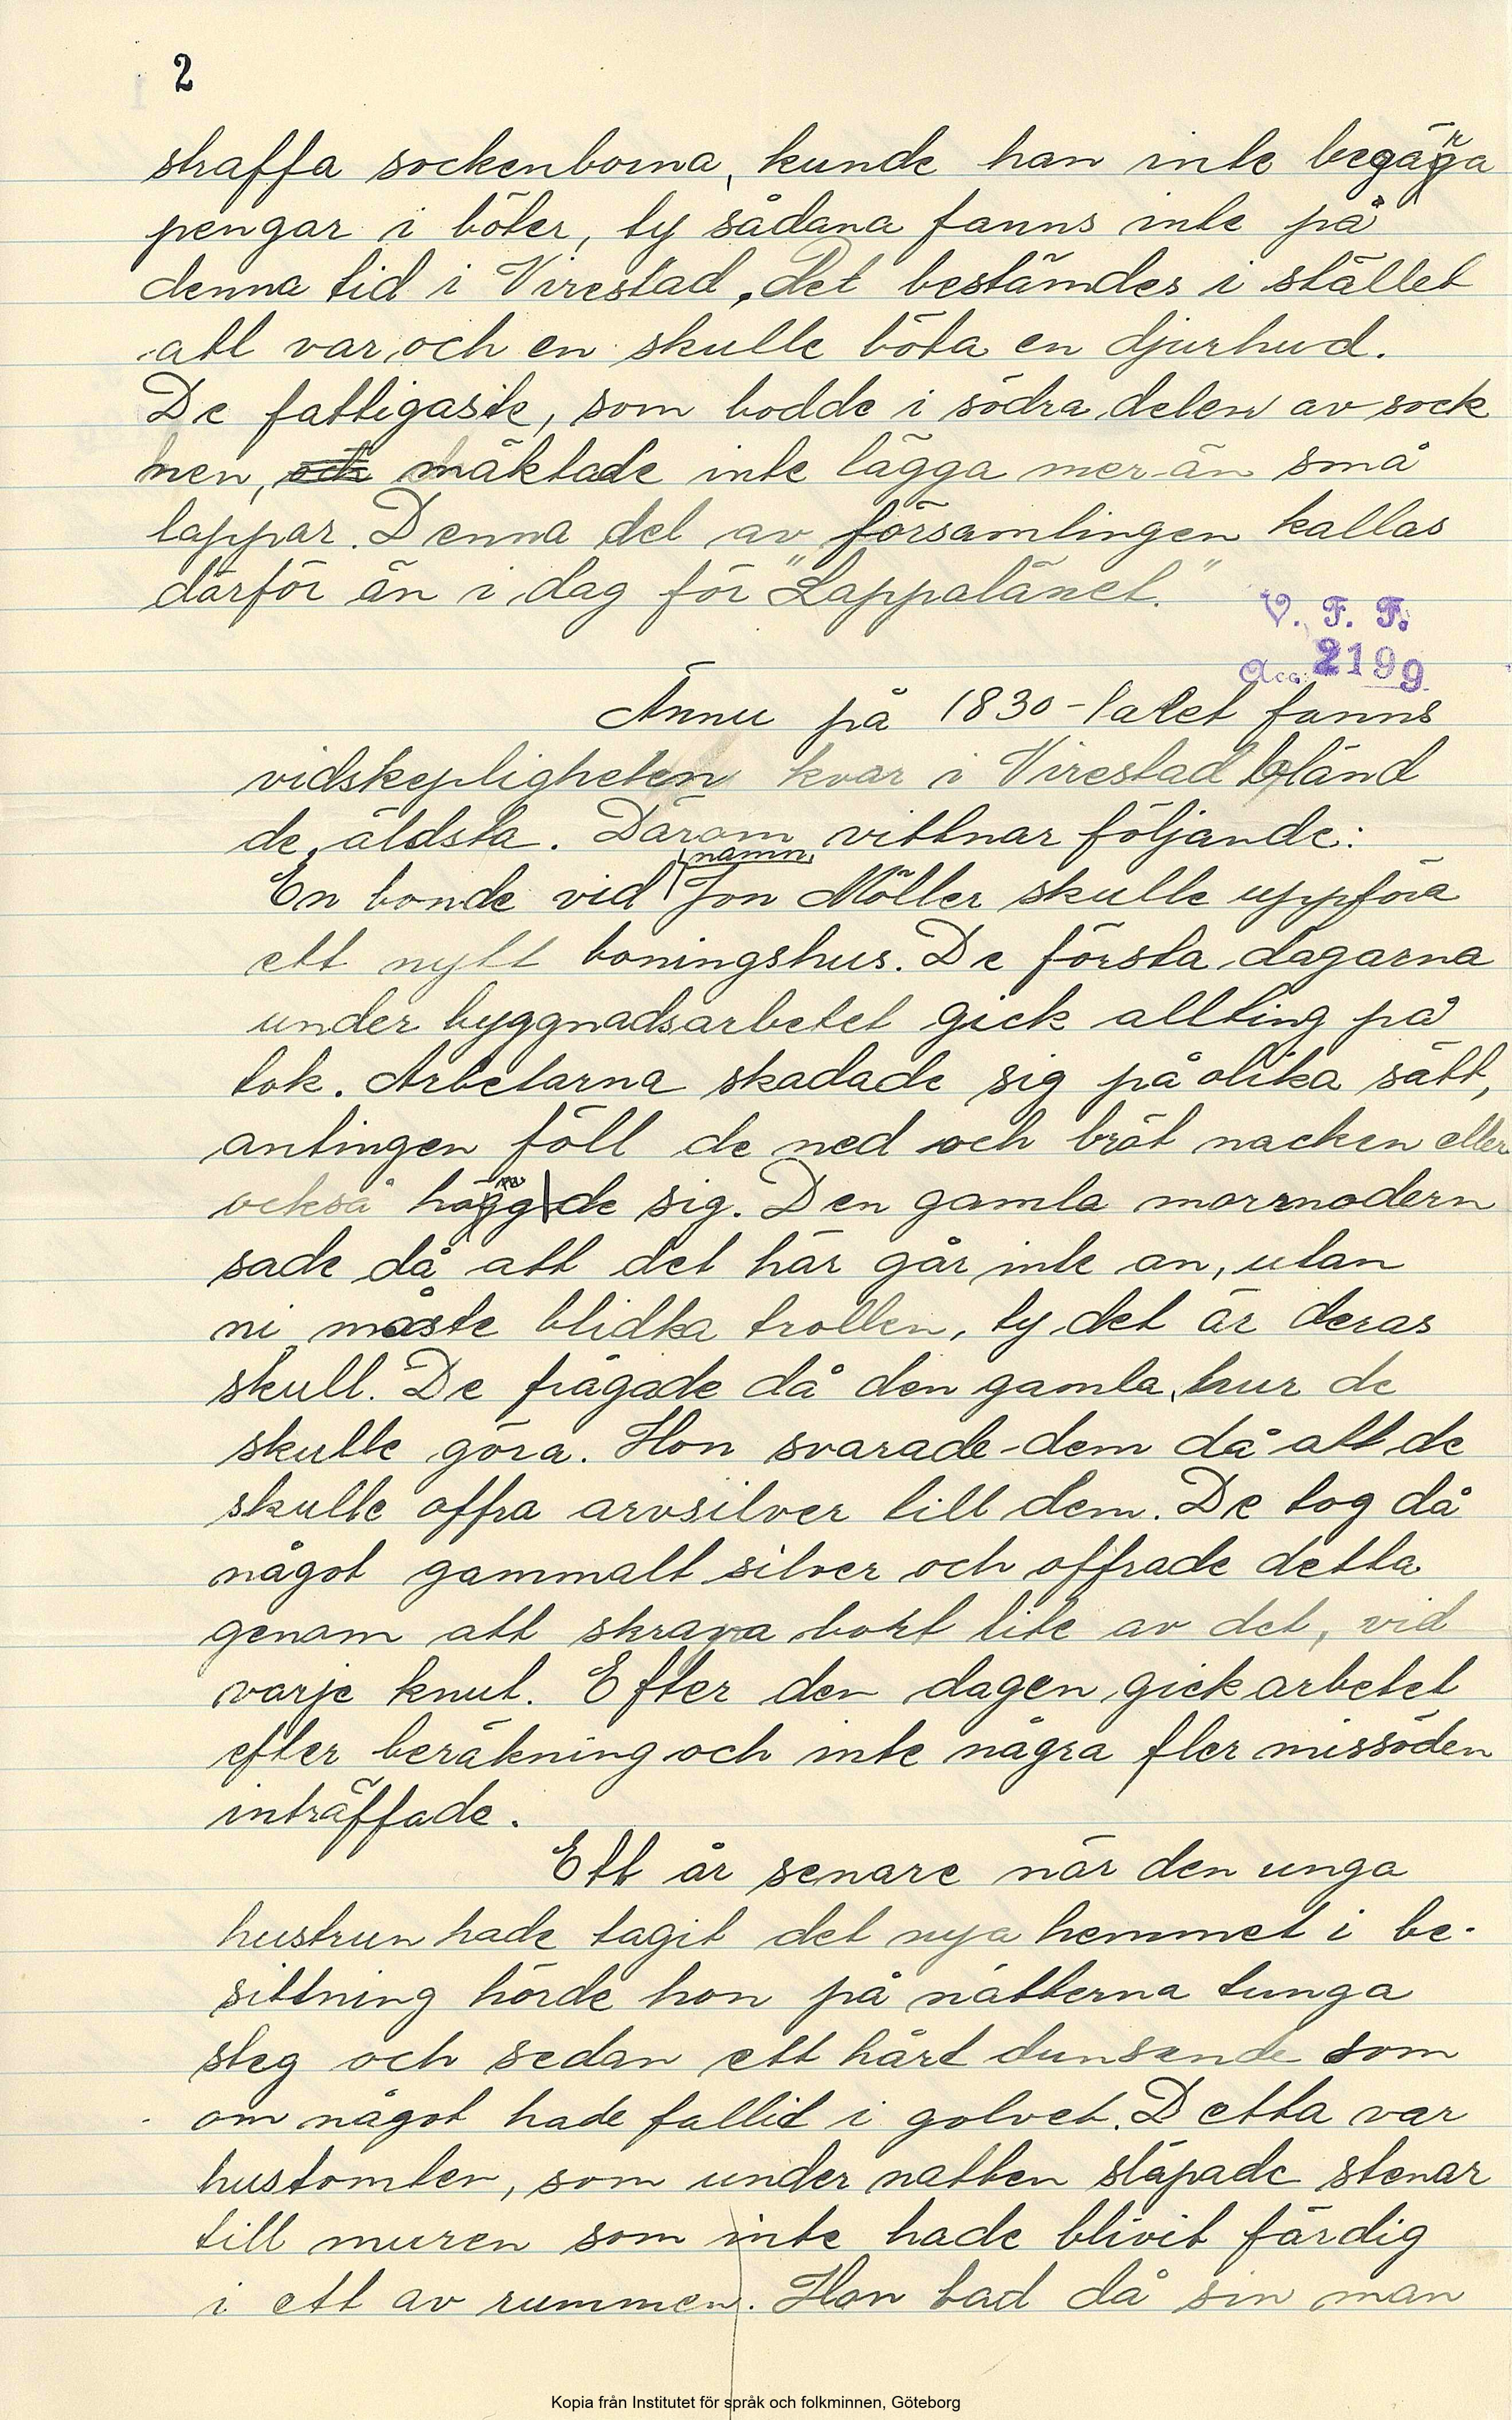 2
straffa sockenborna, kunde han inte begära
pengar i böter, ty sådana fanns inte på
denna tid i Virestad. Det bestämdes i stället
att var och en skulle böta en djurhud.
De fattigaste, som bodde i södra delen av sock
nen, och mäktade inte lägga mer än små
lappar. Denna del av församlingen kallas
därför än i dag för "Lappalänet."
V. F. F.
Acc. 2199
Ännu på 1830-talet fanns
vidskepligheten kvar i Virestad bland
de äldsta. Därom vittnar följande:
En bonde vid namn Jon Möller skulle uppföra
ett nytt boningshus. De första dagarna
under byggnadsarbetet gick allting på
tok. Arbetarna skadade sig på olika sätt,
antingen föll de ned och bröt nacken eller
också högg de sig. Den gamla morrmodern
sade då att det här går inte an, utan
ni måste blidka trollen, ty det är deras
skull. De frågade då den gamla, hur de
skulle göra. Hon svarade dem då att de
skulle offra arvsilver till dem. De tog då
något gammalt silver och offrade detta
genom att skrapa bort lite av det, vid
varje knut. Efter den dagen gick arbetet
efter beräkning och inte några fler missöden
inträffade.
Ett år senare när den unga
hustrun hade tagit det nya hemmet i be-
sittning hörde hon på nätterna tunga
steg och sedan ett hårt dunsande som
om något hade fallit i golvet. Detta var
hustomten, som under natten släpade stenar
till muren som inte hade blivit färdig
i ett av rummen. Hon bad då sin man
Kopia från Institutet för språk och folkminnen, Göteborg